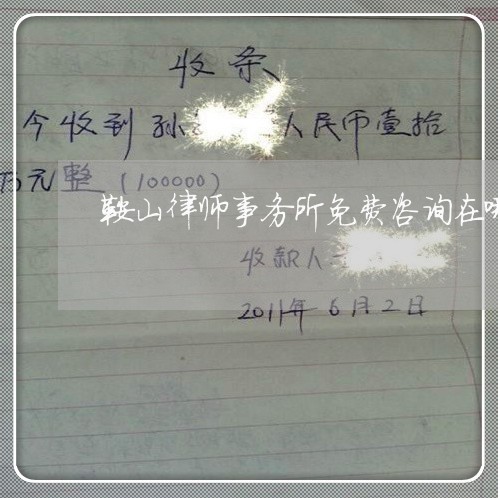 收条
今收到孙 人民币壹拾
万元整（100000）
鞍山律师事务所免费咨询在哪
收款人
2011年6月2日